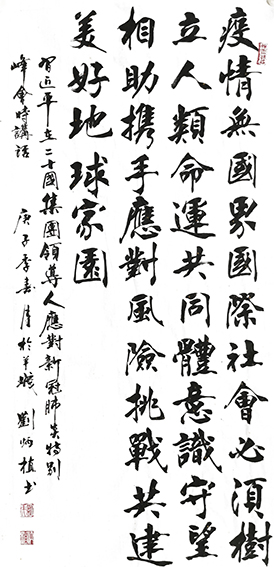 疫情無國界國際社會必須樹
立人類命運共同體意識守望
相助攜手應對風險挑戰共建
美好地球家園
習近平在二十國集團領導人應對新冠肺炎特別
峰會時講話
庚子季春月於羊城 劉炳植書